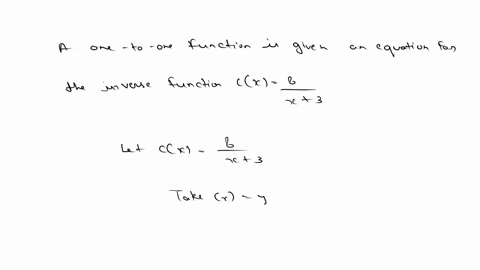 A one-to-one function is given an equation for
the inverse function c(x) = 6/x+3
Let c(x) = 6/x+3
Take (x) = y